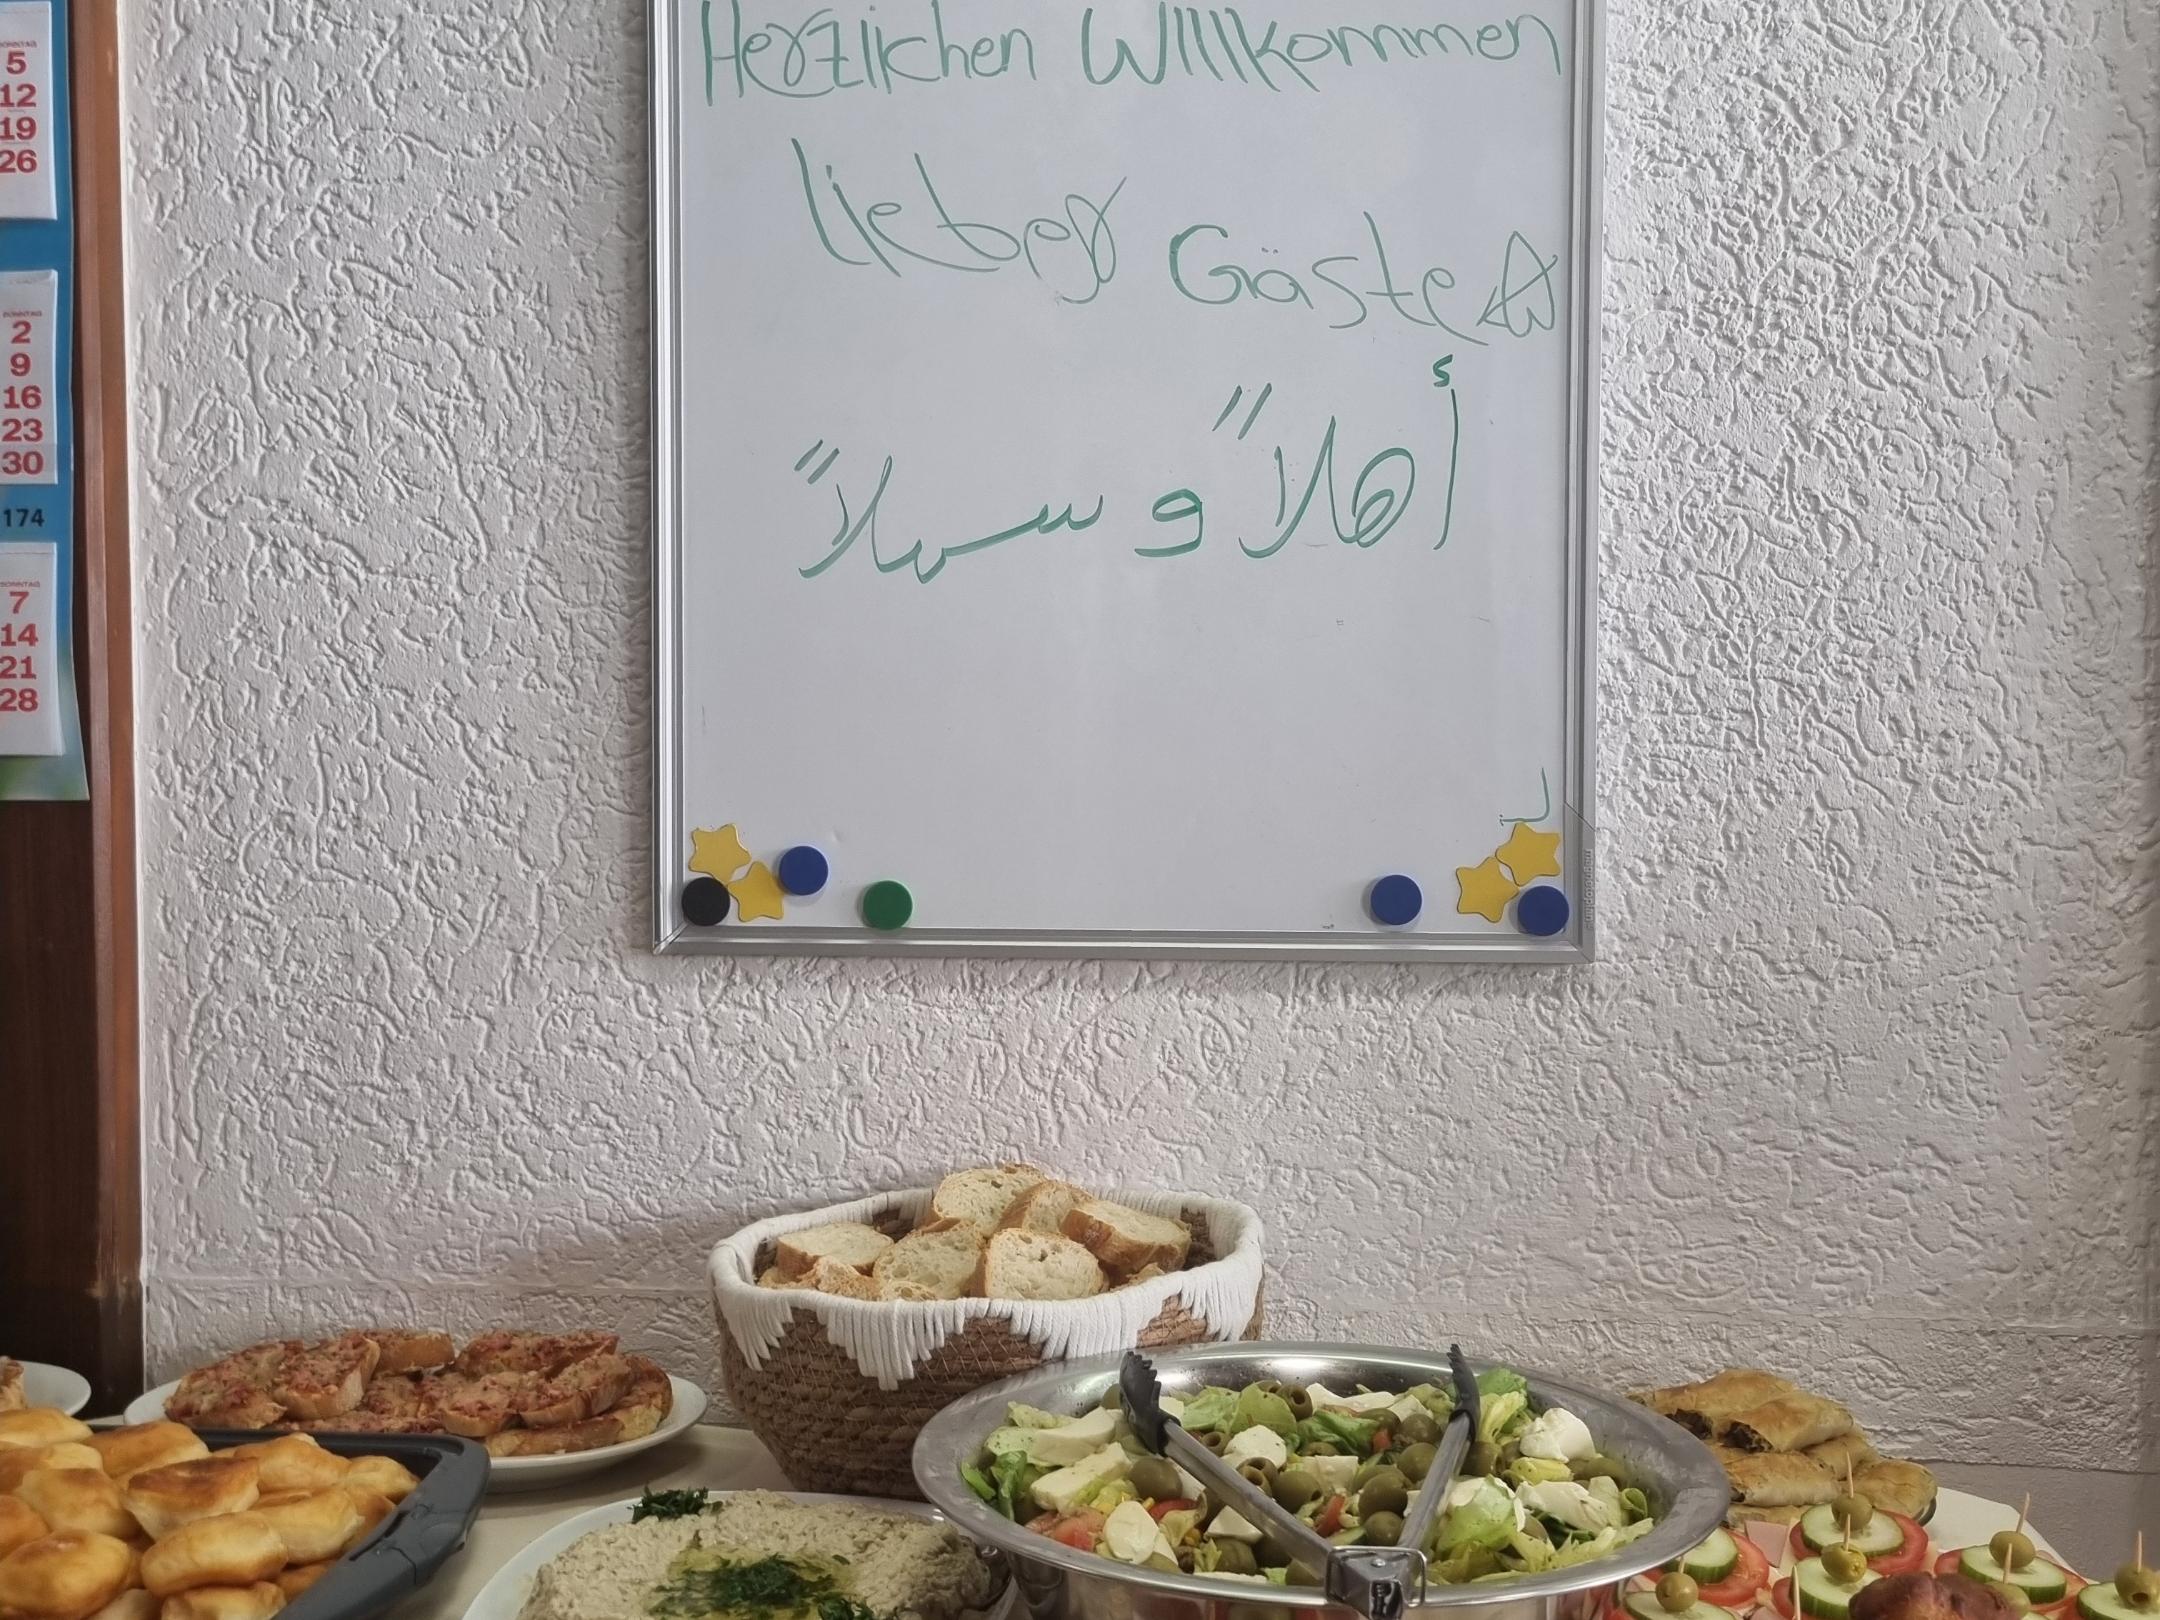 Herzlichen Willkommen
lieber Gäste
أهلاً و سهلاً
SONNTAG
5
12
19
26
SONNTAG
2
9
16
23
30
174
SONNTAG
7
14
21
28
magnetoplan